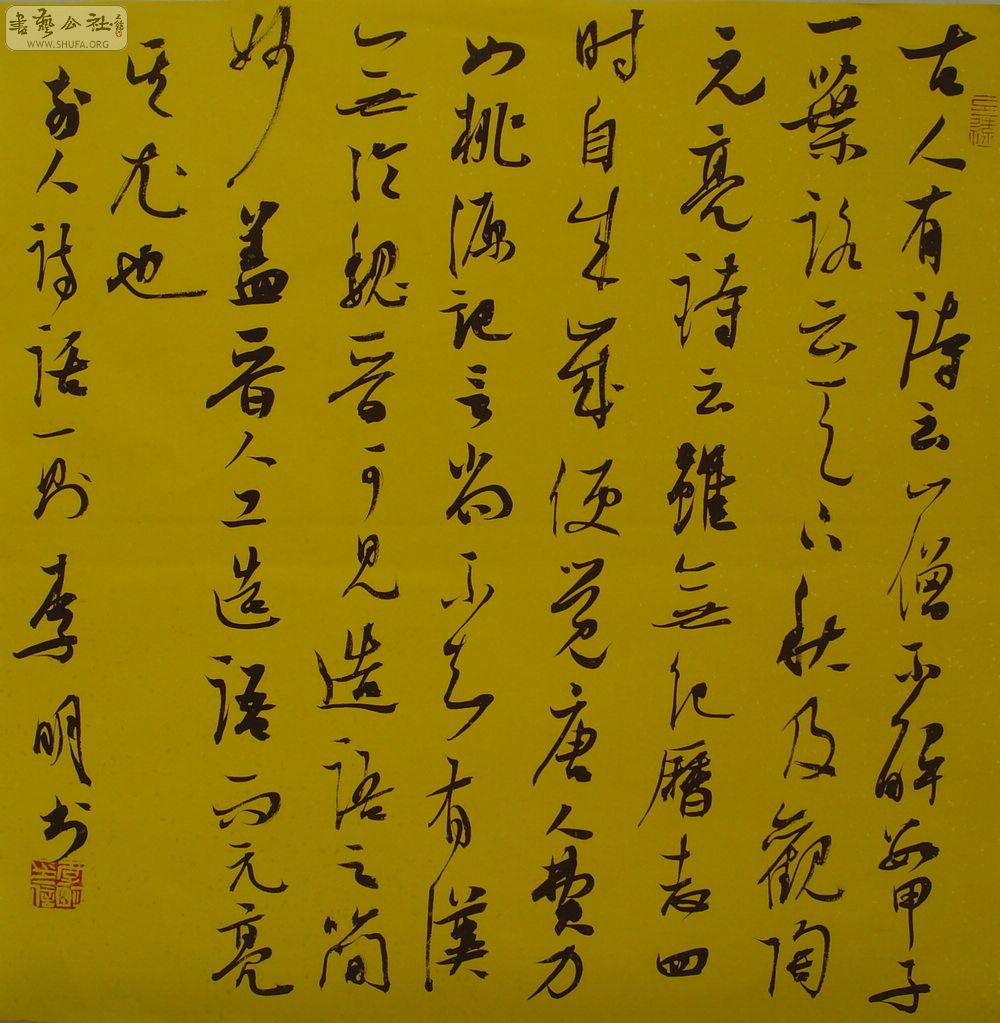 書藝公社
WWW.SHUFA.ORG
古人有詩云山僧不解数甲子
一葉落云天下秋及觀陶
元亮詩云雖無纪曆志四
时自成歲便觉唐人費力
如桃源记言尚不知有漢
無论魏晋可见造语之简
妙蓋晋人工造語而元亮
其尤也
前人诗话一则 李明书